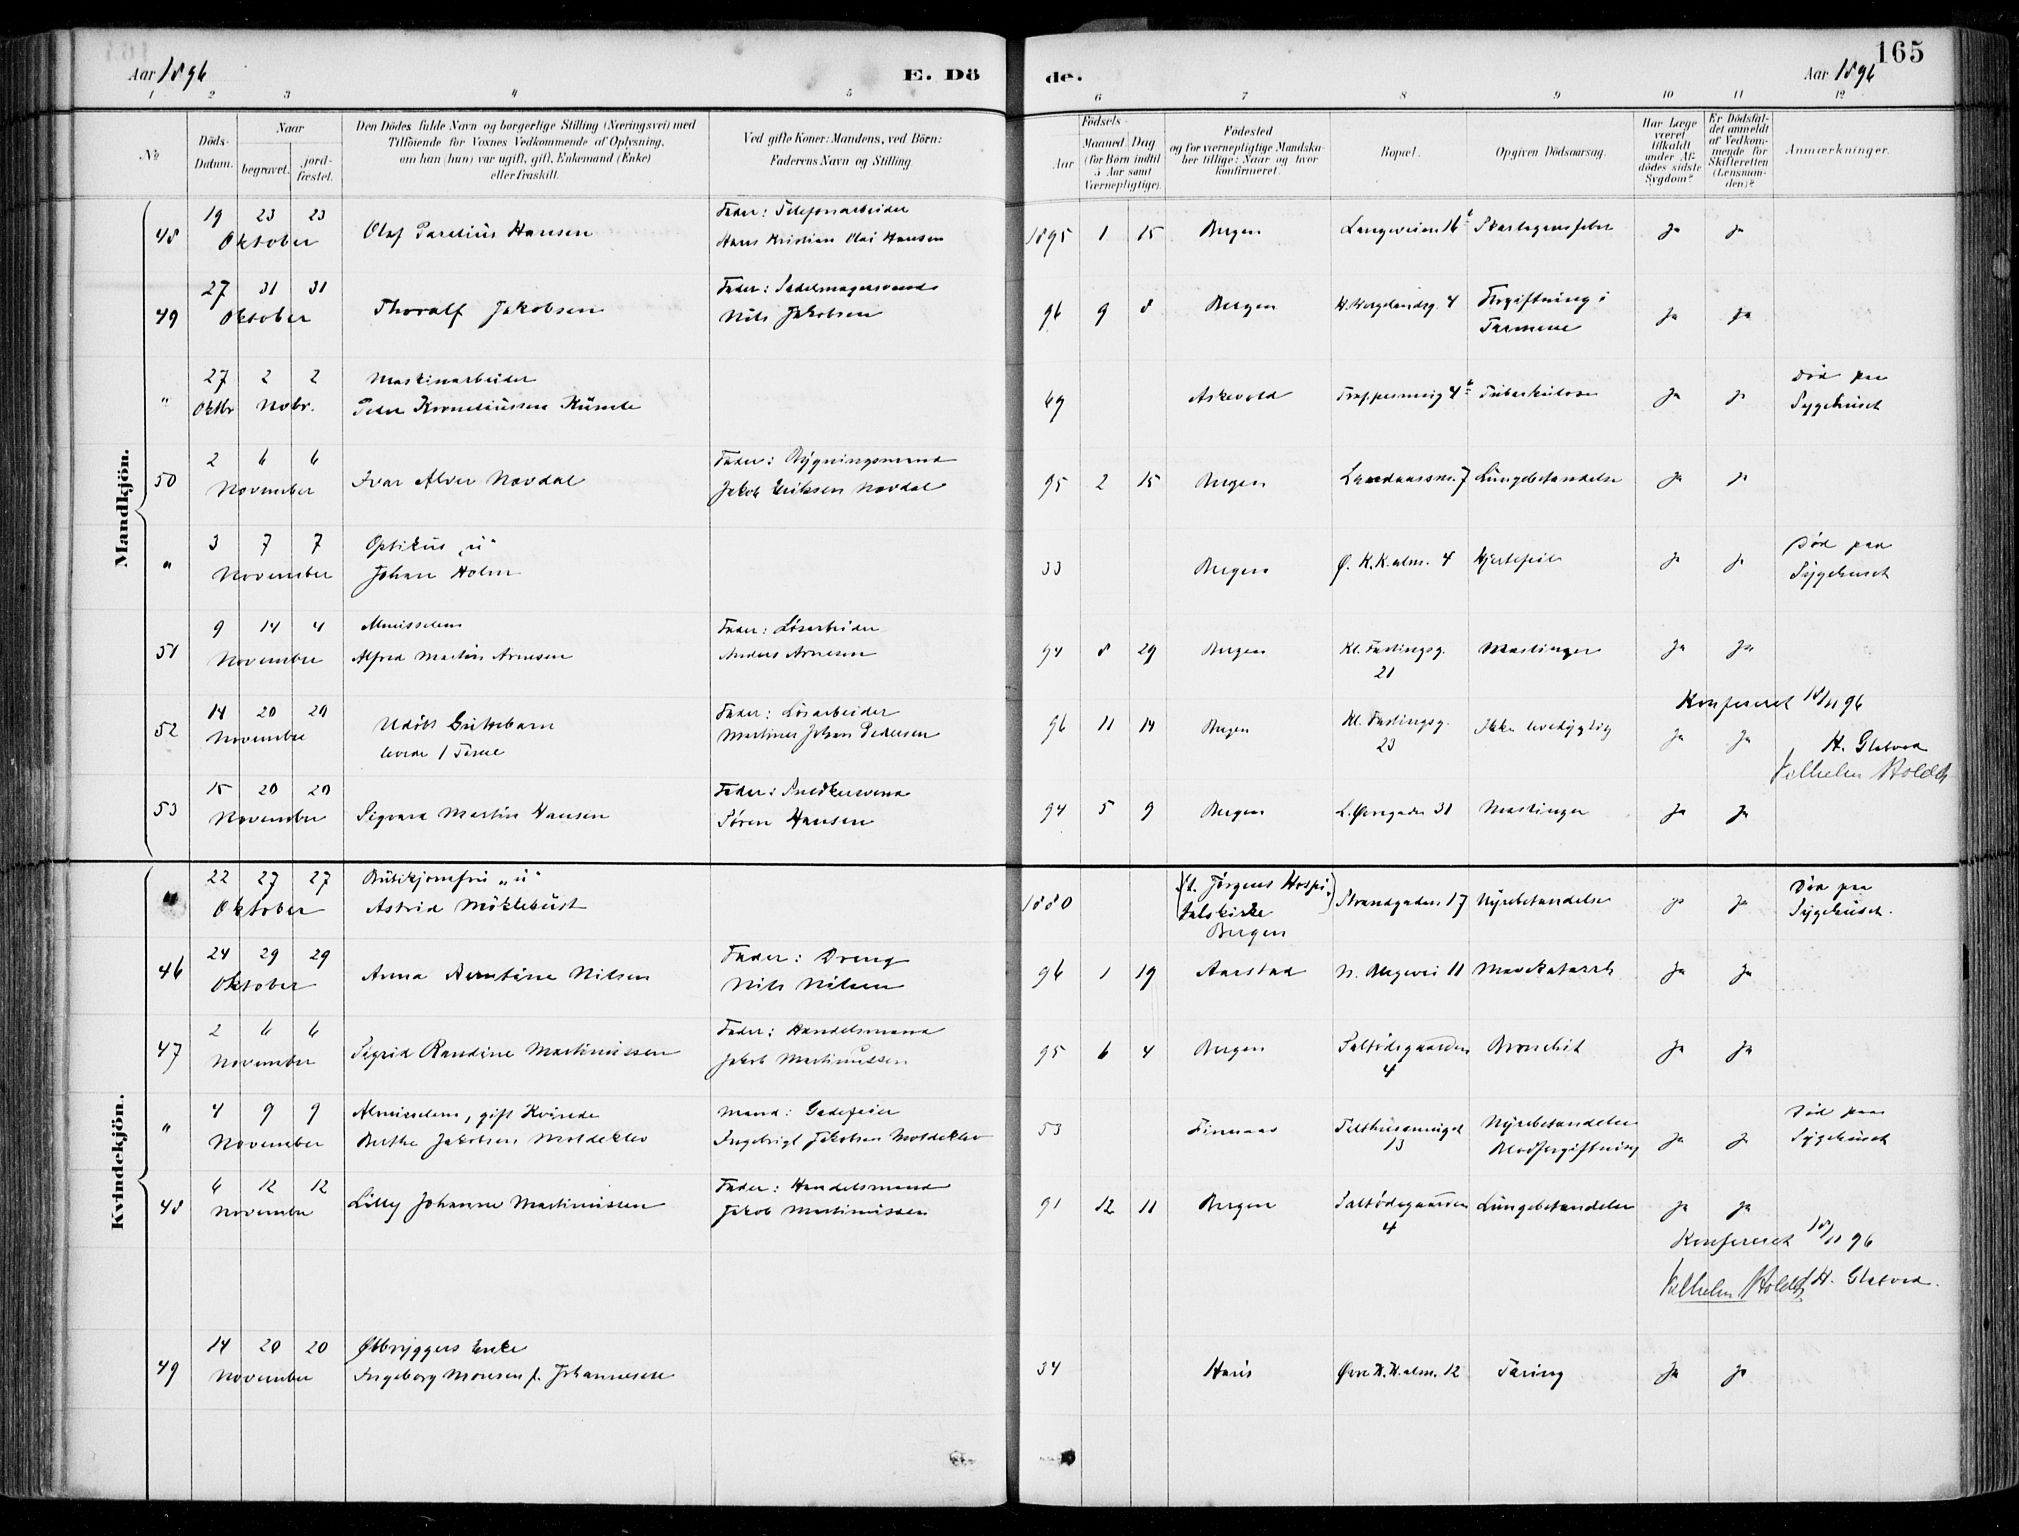 Aar 1896
E. Dö
de.
Aar 1896
165
1 2 3 4 5 6 7 8 9 10 11 12
No
Döds-Datum.
Naar
begravet.
jord-fæstet.
Den Dödes fulde Navn og borgerlige Stilling (Næringsvei) med
Tilföiende for Voxnes Vedkommende af Oplysning,
om han (hun) var ugift, gift, Enkemand (Enke)
eller fraskilt.
Ved gifte Koner: Mandens, ved Börn:
Faderens Navn og Stilling.
Födsels-
Aar
Maaned
Dag
(for Börn indtil
5 Aar samt
Værnepligtige).
Födested
og for værnepligtige Mandska-
ber tillige: Naar og hvor
konfirmeret.
Bopæl.
Opgiven Dödsaarsag.
Har Læge
været
tilkaldt
under Af-
dödes sidste
Sygdom?
Er Dödsfal-
det anmeldt
af Vedkom-
mende for
Skifteretten
(Lensman-
den)?
Anmærkninger.
Mandkjön.
48 19 23 23 Oktober Olaf Parelius Hansen Fader: Telefonarbeider Hans Kristian Olai Hansen 1895 1 15 Bergen Langeveien 16 Skarlagensfeber Ja Ja
49 27 31 31 Oktober Thoralf Jakobsen Fader: Sadelmagersvend Nils Jakobsen 96 9 8 Bergen H. Wergelandsg. 4 Forgiftning i Tarmene Ja Ja
" 27 2 2 Oktbr Novbr. Maskinarbeider Peder Korneliussen 49 Askevold 4 Tuberkulose Ja Ja Död paa Sygehuset
50 2 6 6 November Ivar Alver Nævdal Fader: Bygningsmand Jakob Eriksen Nævdal 95 2 15 Bergen Landaassm. 7 Lungebetændelse Ja Ja
" 3 7 7 November Optikus "u" Johan Holm 33 Bergen Ø. K.K.alm. 4 Hjertefeil Ja Ja Död paa Sygehuset
51 9 14 4 November Almisselem Alfred Martin Arnesen Fader: Løsarbeider Anders Arnesen 94 8 29 Bergen Kl. Fastingsg. 21 Mæslinger Ja Ja
52 14 20 20 November Udøbt Guttebarn levede 1 Time Fader: Løsarbeider Martines Johan Pedersen 96 11 14 Bergen Kl. Fastingsg. 23 Ikke levedygtig Ja Ja
Konfereret 18/11 96
H. Gletved
Vilhelm Holdt
53 15 20 20 November Sigvard Martin Hansen Fader: Snedkersvend Søren Hansen 94 5 9 Bergen L. Øvregaden 31 Mæslinger Ja Ja
Kvindekjön.
" 22 27 27 Oktober Butikjomfru "u" Astrid Möklebust 1880 (St. Jørgens Hospitalskirke) Bergen Strandgaden 17 Nyrebetændelse Ja Ja Död paa Sygehuset.
46 24 29 29 Oktober Anna Berntine Nilsen Fader: Dreng Nils Nilsen 96 1 19 Aarstad N. Blegevei 11 Mavekatarrh Ja Ja
47 2 6 6 November Sigrid Randine Martinussen Fader: Handelsmand Jakob Martinussen 95 6 4 Bergen Saltbodgaarden 4 Bronchit Ja Ja
" 4 9 9 November Almisselem, gift Kvinde Berthe Jakobsen Moldeklev Mand: Gadefeier Ingebrigt Jakobsen Moldeklev 53 Finnaas Telthussmuget 13 Nyrebetændelse Blodforgiftning Ja Ja Död paa Sygehuset
48 6 12 12 November Lilly Johanne Martinussen Fader: Handelsmand Jakob Martinussen 91 12 11 Bergen Saltbodgaarden 4 Lungebetændelse Ja Ja
Konfereret 18/11 96
Vilhelm Holdt H. Gletved.
49 14 20 20 November Ølbryggers Enke Ingeborg Monsen f. Johannesen 34 Haus Øvre K.K.alm. 12 Tæring Ja Ja